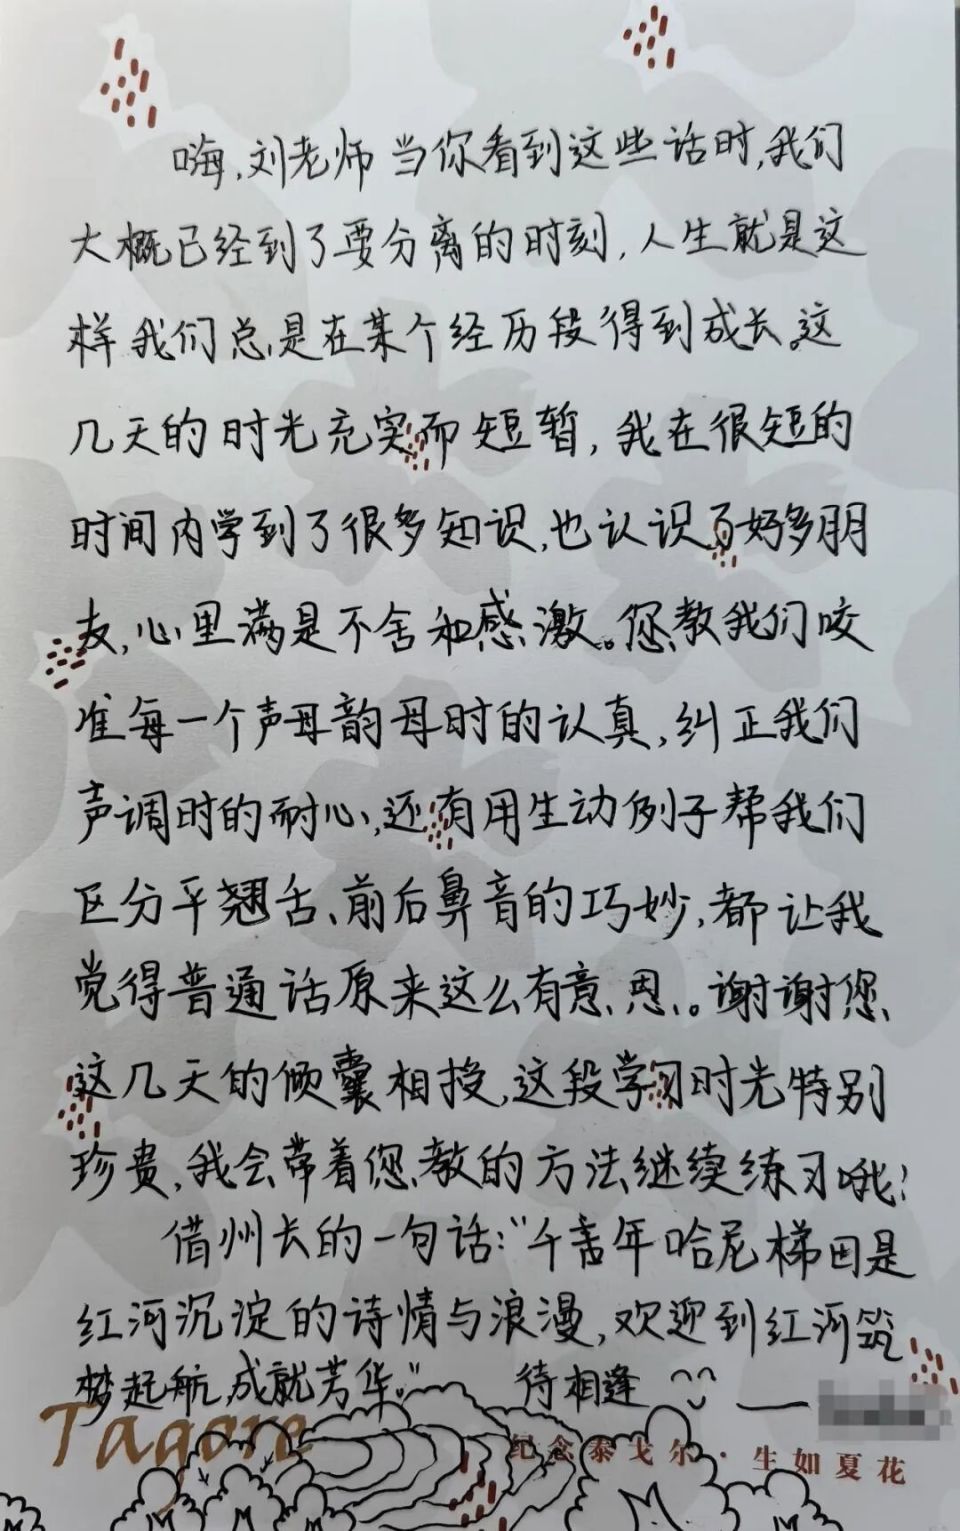 嗨,刘老师当你看到这些话时,我们
大概已经到了要分离的时刻,人生就是这
样我们总是在某个经历段得到成长。这
几天的时光充实而短暂,我在很短的
时间内学到了很多知识,也认识了好多朋
友,心里满是不舍和感激。您教我们咬
准每一个声母韵母时的认真,纠正我们
声调时的耐心,还有用生动例子帮我们
区分平翘舌、前后鼻音的巧妙,都让我
觉得普通话原来这么有意思。谢谢您
这几天的倾囊相授,这段学习时光特别
珍贵,我会带着您教的方法继续练习哦!
借州长的一句话:“千百年哈尼梯田是
红河沉淀的诗情与浪漫,欢迎到红河筑
梦起航,成就芳华。” 待相逢
Tagore
纪念泰戈尔·生如夏花